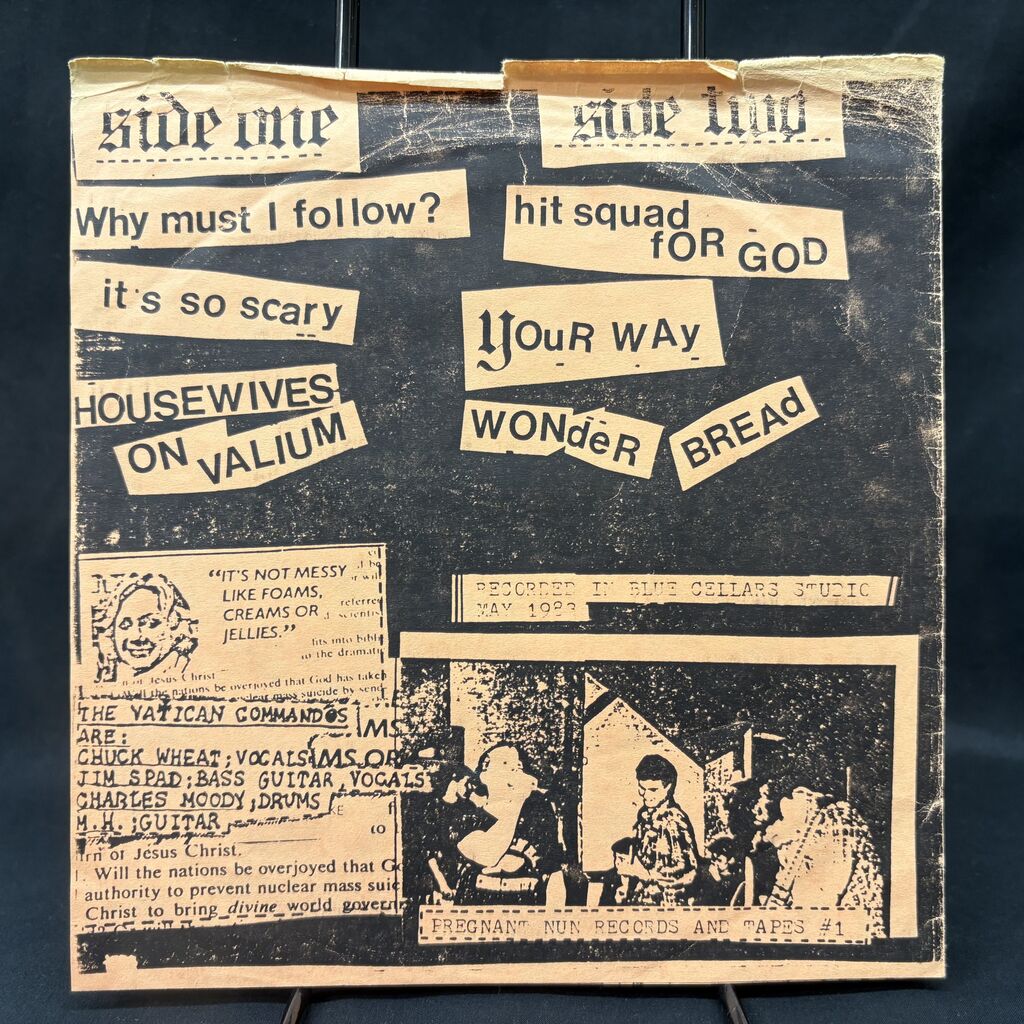 side one
Why must I follow?
it's so scary
HOUSEWIVES
ON VALIUM
side two
hit squad
fOR GOD
YOuR WAy
WONdeR BREAd
"IT'S NOT MESSY
LIKE FOAMS,
CREAMS OR
JELLIES."
referred
fits into bibl
to the dramati
of Jesus Christ
Will the nations be overjoyed that God has taken
nuclear mass suicide by send
THE VATICAN COMMANDOS
ARE:
CHUCK WHEAT;VOCALS
JIM SPAD;BASS GUITAR,VOCALS
CHARLES MOODY;DRUMS
M.H.;GUITAR
MS
MS OR
to
of Jesus Christ.
Will the nations be overjoyed that
authority to prevent nuclear mass suic
Christ to bring divine world governm
RECORDED IN BLUE CELLARS STUDIO
MAY 1983
PREGNANT NUN RECORDS AND TAPES #1